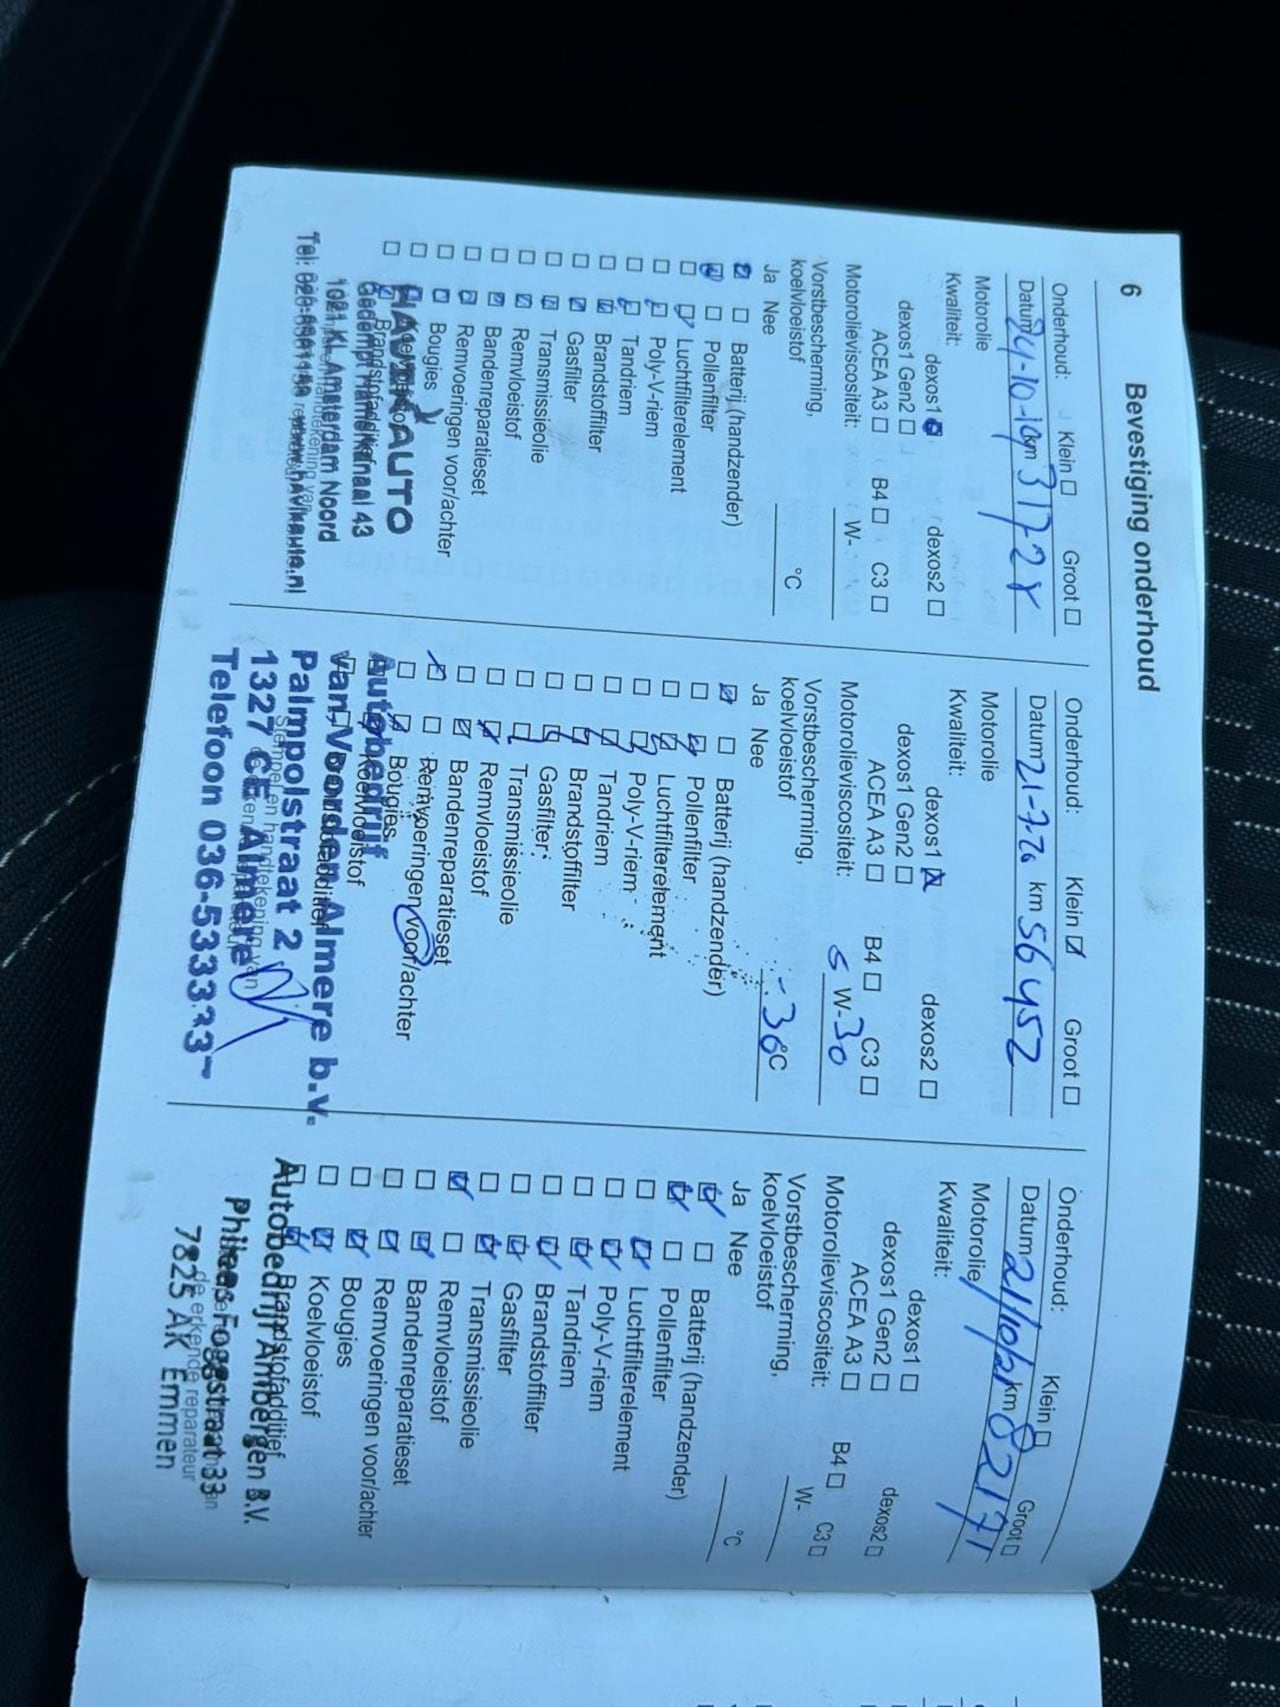 6 Bevestiging onderhoud
Onderhoud: Klein ☐ Groot ☐
Datum 24-10-19 km 31728
Motorolie
Kwaliteit: dexos1 ☑ dexos2 ☐
dexos1 Gen2 ☐
ACEA A3 ☐ B4 ☐ C3 ☐
Motorolieviscositeit: W-
Vorstbescherming,
koelvloeistof °C
Ja Nee
☑ ☐ Batterij (handzender)
☑ ☐ Pollenfilter
☐ ☑ Luchtfilterelement
☐ ☑ Poly-V-riem
☐ ☑ Tandriem
☐ ☑ Brandstoffilter
☐ ☑ Gasfilter
☐ ☑ Transmissieolie
☐ ☑ Remvloeistof
☐ ☑ Bandenreparatieset
☐ ☑ Remvoeringen voor/achter
☐ ☑ Bougies
HAVIK AUTO
Gedempt Hamerkanaal 43
1021 KL Amsterdam Noord
www.havikauto.nl
Onderhoud: Klein ☑ Groot ☐
Datum 21-7-20 km 56452
Motorolie
Kwaliteit: dexos1 ☑ dexos2 ☐
dexos1 Gen2 ☐
ACEA A3 ☐ B4 ☐ C3 ☐
Motorolieviscositeit: 5 W-30
Vorstbescherming,
koelvloeistof -36 °C
Ja Nee
☑ ☐ Batterij (handzender)
☐ ☑ Pollenfilter
☐ ☑ Luchtfilterelement
☐ ☑ Poly-V-riem
☐ ☑ Tandriem
☐ ☑ Brandstoffilter
☐ ☑ Gasfilter
☐ ☑ Transmissieolie
☐ ☑ Remvloeistof
☐ ☑ Bandenreparatieset
☑ ☐ Remvoeringen voor/achter
☐ ☑ Bougies
Koelvloeistof
Autobedrijf
van Voorden Almere b.v.
Palmpolstraat 2
1327 CE Almere
Telefoon 036-5333333
Onderhoud: Klein ☐ Groot ☐
Datum 21/10/21 km 82171
Motorolie
Kwaliteit: dexos1 ☐ dexos2 ☐
dexos1 Gen2 ☐
ACEA A3 ☐ B4 ☐ C3 ☐
Motorolieviscositeit: W-
Vorstbescherming,
koelvloeistof °C
Ja Nee
☑ ☐ Batterij (handzender)
☑ ☐ Pollenfilter
☐ ☑ Luchtfilterelement
☐ ☑ Poly-V-riem
☐ ☑ Tandriem
☐ ☑ Brandstoffilter
☐ ☑ Gasfilter
☐ ☑ Transmissieolie
☑ ☐ Remvloeistof
☐ ☑ Bandenreparatieset
☐ ☑ Remvoeringen voor/achter
☐ ☑ Bougies
☐ ☑ Koelvloeistof
☐ ☑ Brandstofadditief
Autobedrijf Ambergen B.V.
Phileas Foggstraat 33
de erkende reparateur
7825 AK Emmen